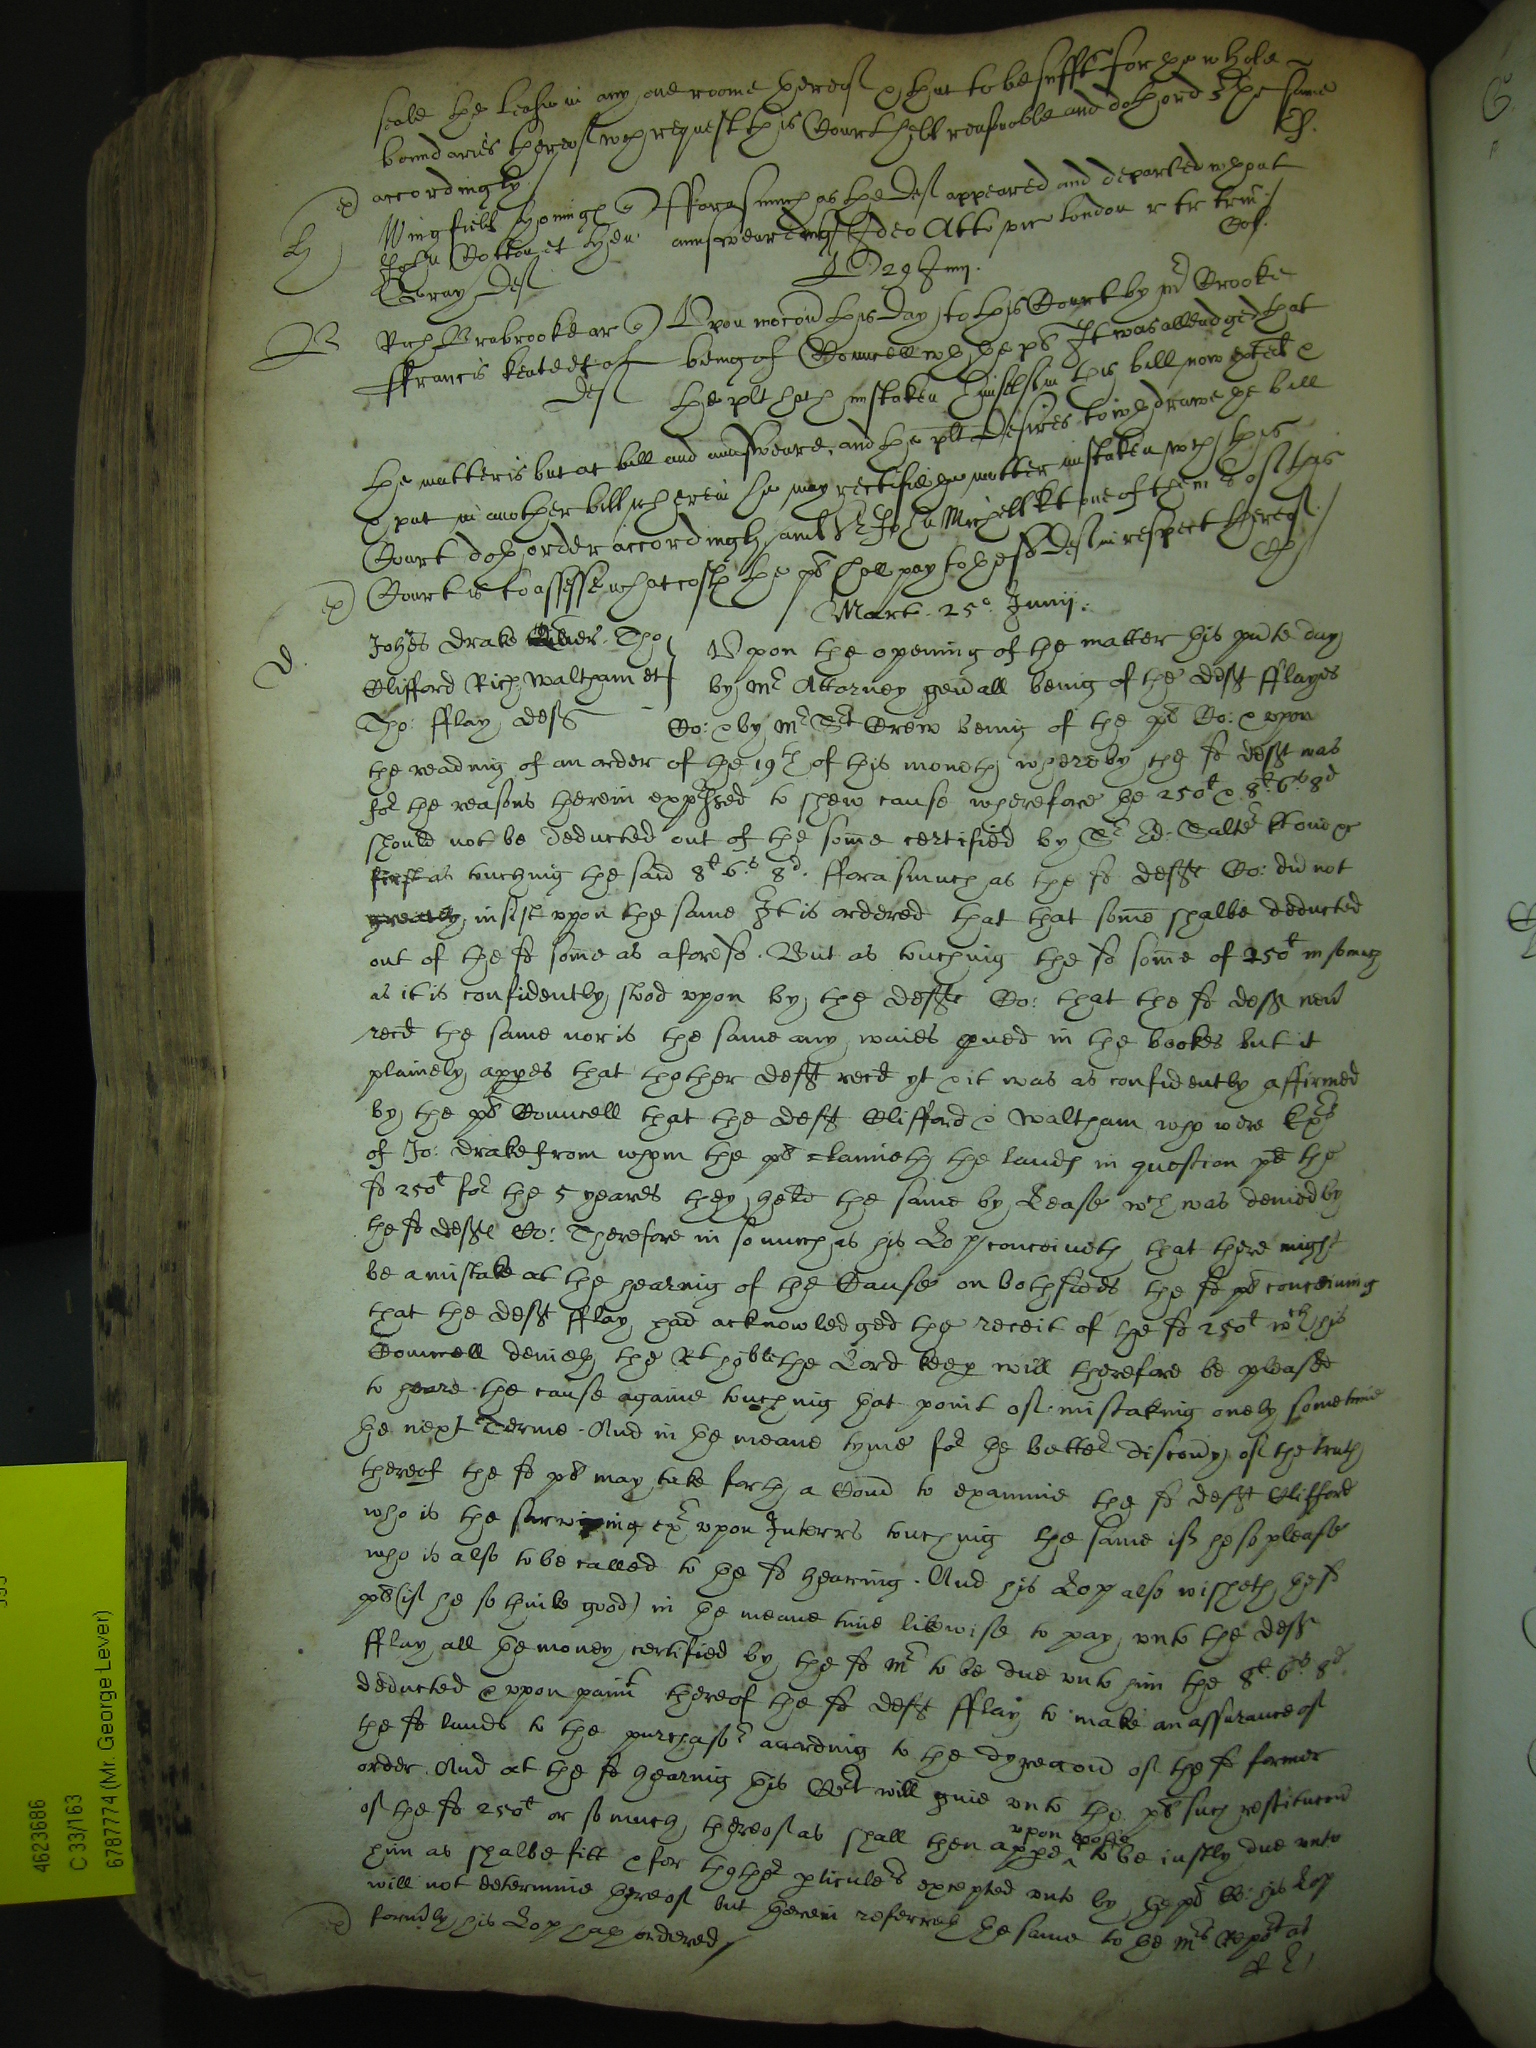 seale the lease in any one roome thereof & that to be sufft for the whole
boundaries thereof wch request this Court held reasonable and doth ord the same
accordingly
Wingfeild
John Cotton et Hen: Fforasmuch as the def appeared and departed wthout
Gray def answearing Ideo Atto vic London r tr trin
29 Junij.
Rich Brabrooke ar Upon mocon this day to this Court by mr Crooke
ffrancis Keate et being of Councell wth the pl It was alleadged that
def the plt hath mistaken himself in his bill now &
the matter is but at bill and answeare, and the plt desires to wthdrawe the bill
& put in another bill wherein he may rectifie the matter mistaken wch this
Court doth order accordingly, and Sr John Michell kt one of the mrs of this
Court is to assesse what costs the pl shall pay to the sd def in respect thereof
Mart. 25o Junij.
Johes Drake Tho
Clifford Rich Waltham et Upon the opening of the matter this pnte day
Tho: fflay, defts by Mr Attorney gen'all being of the deft fflayes
Co: & by Mr St Crew being of the pl Co: & upon
the reading of an order of the 19th of this moneth whereby the sd deft was
for the reasons therein expressed to shew cause wherefore the 250l & 8l 6s 8d
should not be deducted out of the some certified by Sr Ed: Salter kt one &c
first as touching the said 8l 6s 8d. fforasmuch as the sd defts Co: did not
greatly insist upon the same It is ordered that that some shalbe deducted
out of the sd some as aforesd. But as touching the sd some of 250l in somuch
as it is confidently stood upon by the defts Co: that the sd deft nev'
recd the same nor is the same any waies pved in the bookes but it
plainely appes that thother deft recd yt & it was as confidently affirmed
by the pl Councell that the deft Clifford & Waltham who were Exrs
of Jo: Drake from whom the pl claimeth the lands in question pd the
sd 250l for the 5 yeares they held the same by Lease wch was denied by
the sd defts Co: Therefore in so much as his Lop conceiveth that there might
be a mistake at the hearing of the Cause on both sides the sd pl conceiving
that the deft fflay had acknowledged the receit of the sd 250l wch his
Councell denieth the Rt hoble the Lord keep will therefore be pleased
to heare the cause againe touching that point of mistaking onely sometime
the next Terme. And in the meane tyme for the better discovy of the truth
thereof the sd pl may take forth a Com to examine the sd deft Clifford
who is the surviving exr upon Interrs touching the same if he so please
who is also to be called to the sd hearing. And his Lop also wisheth the sd
pl (if he so think good) in the meane time likewise to pay unto the deft
fflay all the money certified by the sd Mr to be due unto him the 8l. 6s. 8d
deducted & upon paimt thereof the sd deft fflay to make an assurance of
the sd lands to the purchasor according to the dyreccon of the sd former
order. And at the sd hearing this Cort will give unto the pl such restitucon
of the sd 250l or so much thereof as shall then appe upon to be iustly due unto
him as shalbe fitt & for thother pticulers excepted unto by the pl his Lop
will not determine thereof but therein referreth the same to the Mrs Report as
formrly his Lop hath ordered
4623686
C 33/163
6787774 (Mr. George Lever)